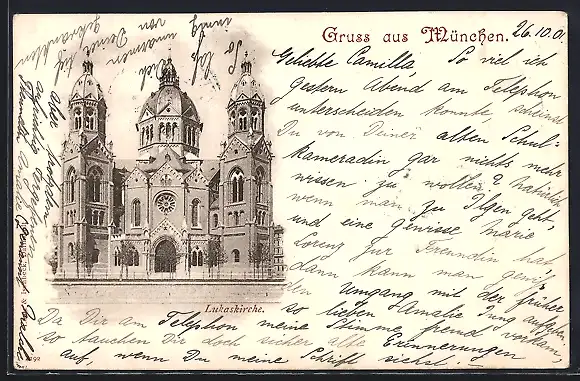 Gruss aus München.
26.10.01
Geliebte Camilla, So viel ich
gestern Abend am Telephon
unterscheiden konnte, scheinst
Du von Deiner alten Schul-
kameradin gar nichts mehr
wissen zu wollen? Natürlich
wenn man zu Ilgen geht,
und eine gewisse Marie
Lorenz zur Freundin hat
dann kann man gewiß
den Umgang mit der früher
so lieben Amalie Jung aufgeben.
Da Dir am Telephon meine Stimme fremd vorkam,
so tauchen Dir doch sicher alte Erinnerungen
auf, wenn Du meine Schrift siehst.
Lukaskirche.
So laß
Dich
umarmen von
Deiner